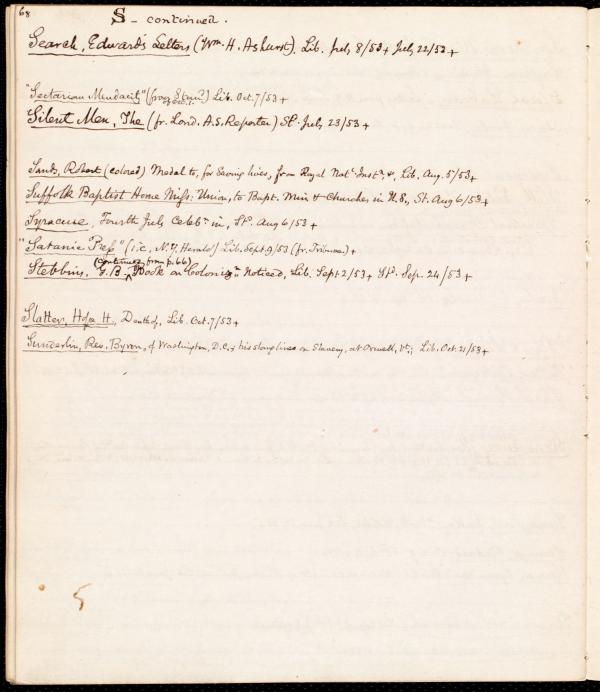 68
S - continued.
Search, Edward's Letters (Wm. H. Ashurst). Lib. July 8/53+ July 22/53+
"Sectarian Mendacity" (from Lib. Oct. 7/53+
Silent Men, The (fr. Lond. A.S. Reporter) St. July 23/53+
Sands, Robert (colored) Medal to, for Saving lives, from Royal Natl. Instn. &c, Lib. Aug. 5/53+
Suffolk Baptist Home Miss: Union, to Bapt. Min & Churches in U.S., St. Aug 6/53+
Syracuse, Fourth July Celebn. in, Std. Aug 6/53+
"Satanic Press" (i.e., N.Y. Herald) Lib. Sept. 9/53 (fr. Tribune)+
(continued from p. 66)
Stebbins, G.B. Book on Colonizn. Noticed, Lib. Sept 2/53+ Std. Sep. 24/53+
Slatter, Hope H., Death of, Lib. Oct. 7/53+
Sunderlin, Rev. Byron, of Washington, D.C., & his slang lines on Slavery, at Orwell, Vt.; Lib. Oct. 21/53+